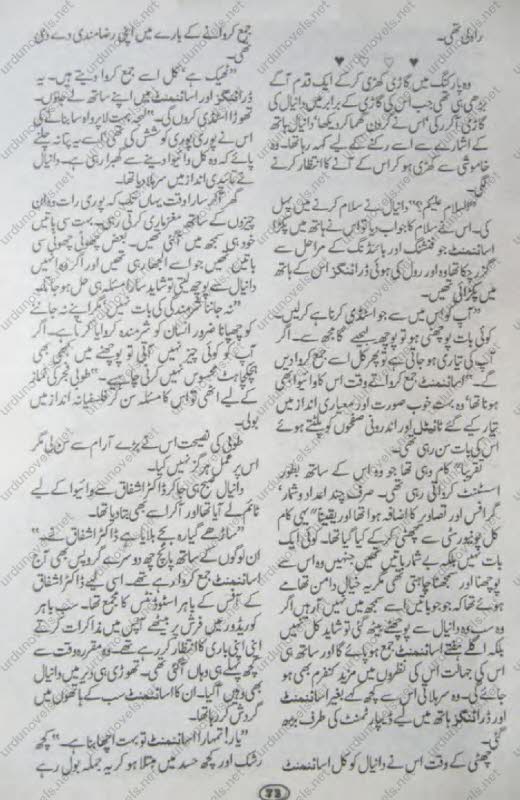 راولی تھی۔
♥ ♡ ♡ ♥
وہ پارکنگ میں گاڑی کھڑی کرکے ایک قدم آگے
بڑھی ہی تھی جب اس کی گاڑی کے برابر میں دانیال کی
گاڑی آکر رکی‘ اس نے گردن گھما کر دیکھا‘ دانیال ہاتھ
کے اشارے سے اسے رکنے کے لیے کہہ رہا تھا۔ وہ
خاموشی سے کھڑی ہو کر اس کے آنے کا انتظار کرنے
لگی۔
”السلام علیکم!“ دانیال نے سلام کرنے میں پہل
کی۔ اس نے سلام کا جواب دیا تو اس نے ہاتھ میں پکڑا
اسائنمنٹ جو فنشنگ اور بائنڈنگ کے مراحل سے
گزر چکا تھا وہ اور رول کی ہوئی ڈرائنگز اس کے ہاتھ
میں پکڑائی تھیں۔
”آپ کو اس میں سے جو اسٹڈی کرنا ہے کرلیں۔
کوئی بات پوچھنی ہو تو پوچھ لیجیے گا مجھ سے۔ اگر
آپ کی تیاری ہو جاتی ہے تو پھر کل اسے جمع کروا دیں
گے۔“ اسائنمنٹ جمع کرواتے وقت اس کا وائیوا بھی
ہونا تھا‘ وہ بہت خوب صورت اور معیاری انداز میں
تیار کیے گئے ٹائیٹل اور اندرونی صفحوں کو پلٹتے ہوئے
اس کی بات سن رہی تھی۔
تقریبا“ کام وہی تھا جو وہ اس کے ساتھ بطور
اسسٹنٹ کرواتی رہی تھی۔ صرف چند اعداد و شمار‘
گرافس اور تصاویر کا اضافہ ہوا تھا اور یقینا“ یہی کام
کل یونیورسٹی سے چھٹی کرکے کیا گیا تھا۔ کوئی ایک
بات نہیں بلکہ بے شمار باتیں تھیں‘ جنہیں وہ اس سے
پوچھنا اور سمجھنا چاہتی تھی مگر یہ خیال دامن تھامے
ہوئے تھا کہ جو جو باتیں اسے سمجھ میں نہیں آرہیں اگر
وہ سب وہ دانیال سے پوچھنے بیٹھ گئی تو شاید کل نہیں
بلکہ اگلے ہفتے اسائنمنٹ جمع ہو پائے گا اور ساتھ ہی
اس کی جہالت اس کی نظروں میں مزید کنفرم بھی ہو
جائے گی۔ وہ سرہلاتی اس سے کچھ کہے بغیر اسائنمنٹ
اور ڈرائنگز ہاتھ میں لیے ڈیپارٹمنٹ کی طرف بڑھ
گئی۔
چھٹی کے وقت اس نے دانیال کو کل اسائنمنٹ
جمع کروانے کے بارے میں اپنی رضامندی دے دی
تھی۔
”ٹھیک ہے‘ کل اسے جمع کروا دیتے ہیں۔ یہ
ڈرائنگز اور اسائنمنٹ میں اپنے ساتھ لے جاؤں۔
تھوڑا اسٹڈی کروں گی۔“ لہجہ بہت لاپروا سا بنانے کی
اس نے پوری پوری کوشش کی تھی‘ اسے یہ پتا نہ چلنے
پائے کہ وہ کل وائیوا دینے سے گھبرا رہی ہے۔ دانیال
نے تائیدی انداز میں سرہلا دیا تھا۔
گھر آکر سارا وقت یہاں تک کہ پوری رات وہ ان
چیزوں کے ساتھ مغز ماری کرتی رہی۔ بہت سی باتیں
خود ہی سمجھ میں آگئی تھیں۔ بعض چھوٹی چھوٹی سی
باتیں تھیں جو اسے الجھا رہی تھیں اور اگر وہ انہیں
دانیال سے پوچھ لیتی تو شاید سارا مسئلہ ہی حل ہو جاتا۔
”نہ جاننا شرمندگی کی بات نہیں مگر اپنے نہ جانے
کو چھپانا ضرور انسان کو شرمندہ کروایا کرتا ہے۔ اگر
آپ کو کوئی چیز نہیں آتی تو پوچھنے میں کبھی بھی
ہچکچاہٹ محسوس نہیں کرنی چاہیے۔“ طوبیٰ فجر کی نماز
کے لیے اٹھی تو اس کا مسئلہ سن کر فلسفیانہ انداز میں
بولی۔
طوبیٰ کی نصیحت اس نے بڑے آرام سے سن لی مگر
اس پر عمل ہرگز نہیں کیا۔
دانیال صبح ہی جا کر ڈاکٹر اشفاق سے وائیوا کے لیے
ٹائم لے آیا تھا اور آکر اسے بھی بتا دیا تھا۔
”ساڑھے گیارہ بجے بلایا ہے ڈاکٹر اشفاق نے۔“
ان لوگوں کے ساتھ پانچ چھ دوسرے گروپس بھی آج
اسائنمنٹ جمع کروا رہے تھے۔ اسی لیے ڈاکٹر اشفاق
کے آفس کے باہر اسٹوڈنٹس کا مجمع تھا۔ سب باہر
کوریڈور میں فرش پر بیٹھے آپس میں مذاکرات کرتے
اپنی اپنی باری کا انتظار کر رہے تھے۔ وہ مقررہ وقت سے
کچھ پہلے ہی وہاں آگئی تھی۔ تھوڑی ہی دیر میں دانیال
بھی وہیں آگیا۔ ان کا اسائنمنٹ سب کے ہاتھوں میں
گردش کر رہا تھا۔
”یار! تمہارا اسائنمنٹ تو بہت اچھا بنا ہے۔“ کچھ
رشک اور کچھ حسد میں مبتلا ہو کر یہ جملہ بول رہے
73
urdunovels.net